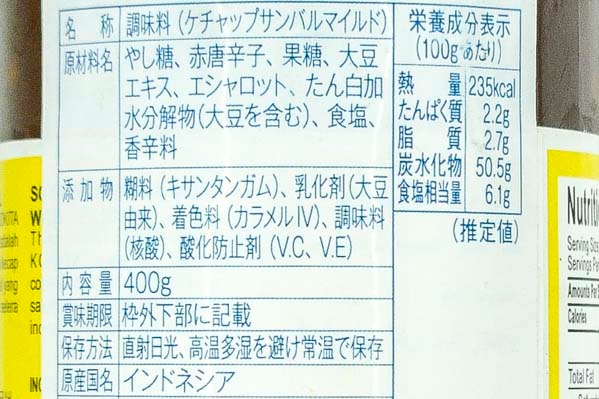 名称 調味料(ケチャップサンバルマイルド)
原材料名 やし糖、赤唐辛子、果糖、大豆
エキス、エシャロット、たん白加
水分解物(大豆を含む)、食塩、
香辛料
添加物 糊料(キサンタンガム)、乳化剤(大豆
由来)、着色料(カラメルIV)、調味料
(核酸)、酸化防止剤(V.C、V.E)
内容量 400g
賞味期限 枠外下部に記載
保存方法 直射日光、高温多湿を避け常温で保存
原産国名 インドネシア
栄養成分表示
(100gあたり)
熱量 235kcal
たんぱく質 2.2g
脂質 2.7g
炭水化物 50.5g
食塩相当量 6.1g
(推定値)
Serving Size
Servings Per
Amounts Per
Calories
Total Fat